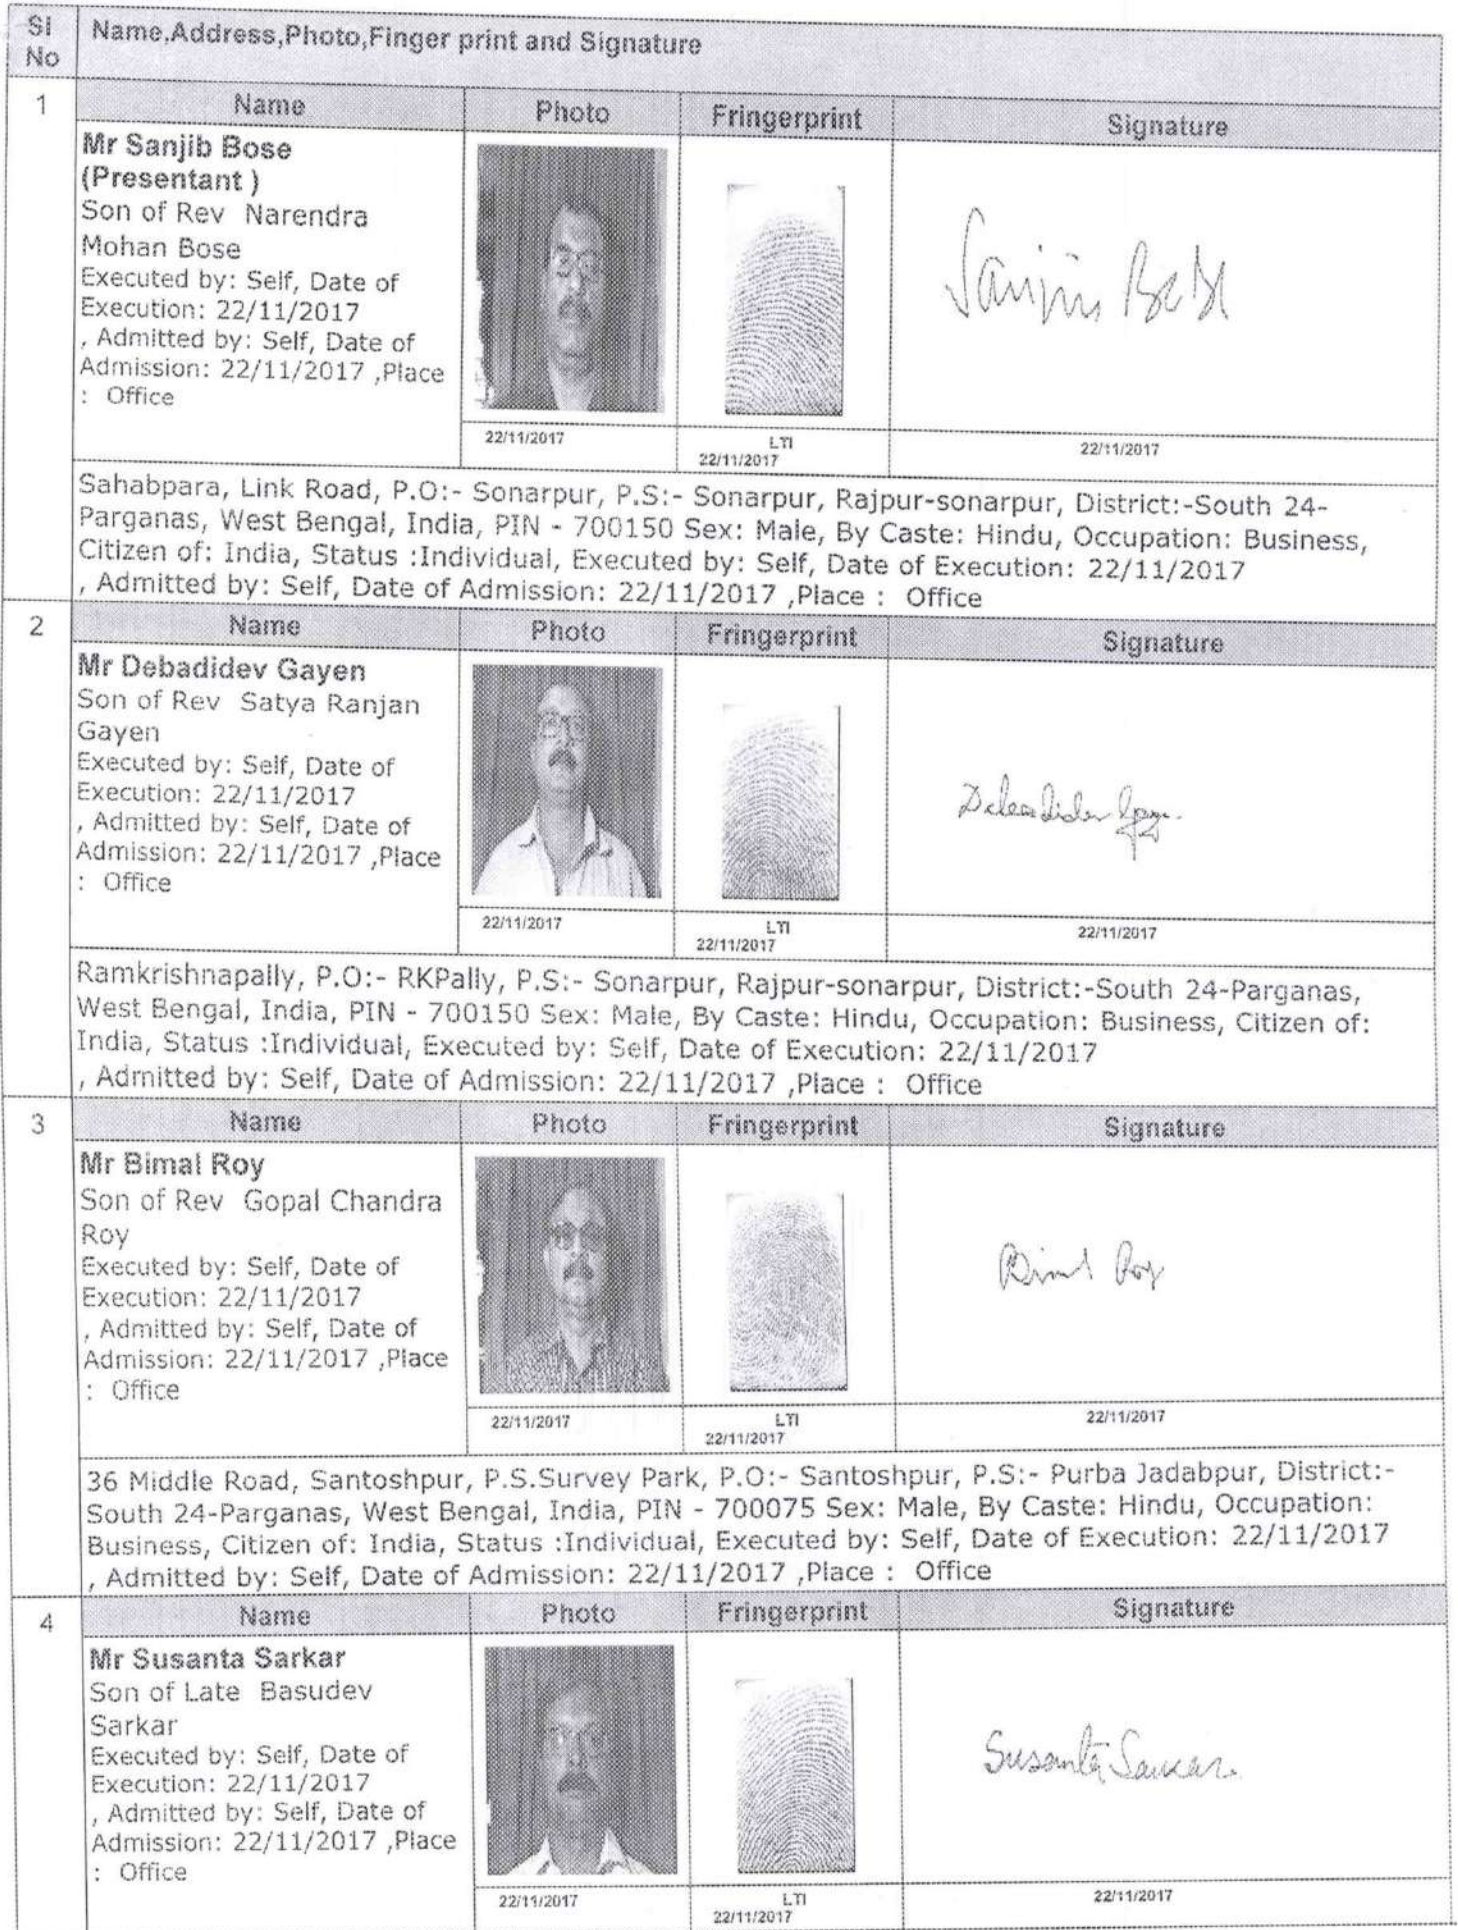 Sl No Name,Address,Photo,Finger print and Signature
1 Name Photo Fringerprint Signature
Mr Sanjib Bose
(Presentant )
Son of Rev Narendra
Mohan Bose
Executed by: Self, Date of
Execution: 22/11/2017
, Admitted by: Self, Date of
Admission: 22/11/2017 ,Place
: Office
22/11/2017 LTI 22/11/2017 22/11/2017
Sahabpara, Link Road, P.O:- Sonarpur, P.S:- Sonarpur, Rajpur-sonarpur, District:-South 24-
Parganas, West Bengal, India, PIN - 700150 Sex: Male, By Caste: Hindu, Occupation: Business,
Citizen of: India, Status :Individual, Executed by: Self, Date of Execution: 22/11/2017
, Admitted by: Self, Date of Admission: 22/11/2017 ,Place : Office
2 Name Photo Fringerprint Signature
Mr Debadidev Gayen
Son of Rev Satya Ranjan
Gayen
Executed by: Self, Date of
Execution: 22/11/2017
, Admitted by: Self, Date of
Admission: 22/11/2017 ,Place
: Office
22/11/2017 LTI 22/11/2017 22/11/2017
Ramkrishnapally, P.O:- RKPally, P.S:- Sonarpur, Rajpur-sonarpur, District:-South 24-Parganas,
West Bengal, India, PIN - 700150 Sex: Male, By Caste: Hindu, Occupation: Business, Citizen of:
India, Status :Individual, Executed by: Self, Date of Execution: 22/11/2017
, Admitted by: Self, Date of Admission: 22/11/2017 ,Place : Office
3 Name Photo Fringerprint Signature
Mr Bimal Roy
Son of Rev Gopal Chandra
Roy
Executed by: Self, Date of
Execution: 22/11/2017
, Admitted by: Self, Date of
Admission: 22/11/2017 ,Place
: Office
Bimal Roy
22/11/2017 LTI 22/11/2017 22/11/2017
36 Middle Road, Santoshpur, P.S.Survey Park, P.O:- Santoshpur, P.S:- Purba Jadabpur, District:-
South 24-Parganas, West Bengal, India, PIN - 700075 Sex: Male, By Caste: Hindu, Occupation:
Business, Citizen of: India, Status :Individual, Executed by: Self, Date of Execution: 22/11/2017
, Admitted by: Self, Date of Admission: 22/11/2017 ,Place : Office
4 Name Photo Fringerprint Signature
Mr Susanta Sarkar
Son of Late Basudev
Sarkar
Executed by: Self, Date of
Execution: 22/11/2017
, Admitted by: Self, Date of
Admission: 22/11/2017 ,Place
: Office
Susanta Sarkar.
22/11/2017 LTI 22/11/2017 22/11/2017